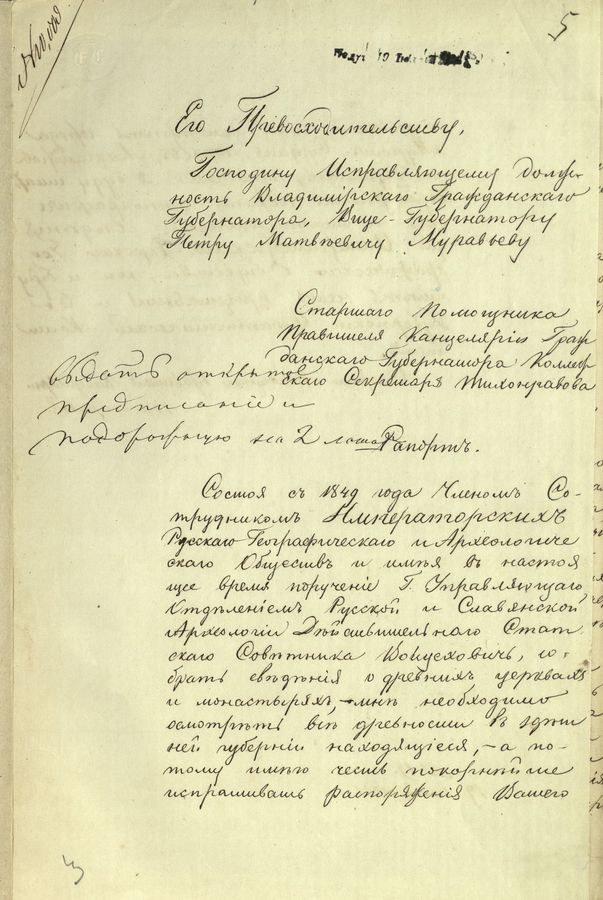 5
Его Превосходительству,
Господину Исправляющему долж-
ность Владимірскаго Гражданскаго
Губернатора, Вице-Губернатору
Петру Матвѣевичу Муравьеву
Старшаго Помощника
Правителя Канцеляріи Граж
данскаго Губернатора Коллеж
скаго Секретаря Тихонравова
выдать открытое
предписаніе и
подорожную на 2 лошад
Рапортъ.
Состоя съ 1849 года Членомъ Со-
трудникомъ Императорскихъ
Русскаго Географическаго и Археологиче
скаго Обществъ и имѣя въ настоя
щее время порученіе Г. Управляющаго
Отдѣленіемъ Русской и Славянской
Археологіи Дѣйствительнаго Стат
скаго Совѣтника Войцеховичъ, со-
брать свѣдѣнія о древнихъ церквахъ
и монастыряхъ, – мнѣ необходимо
осмотрѣть всѣ древности въ здѣш
ней губерніи находящіеся, – а по-
тому имѣю честь покорнѣйше
испрашивать распоряженія Вашего